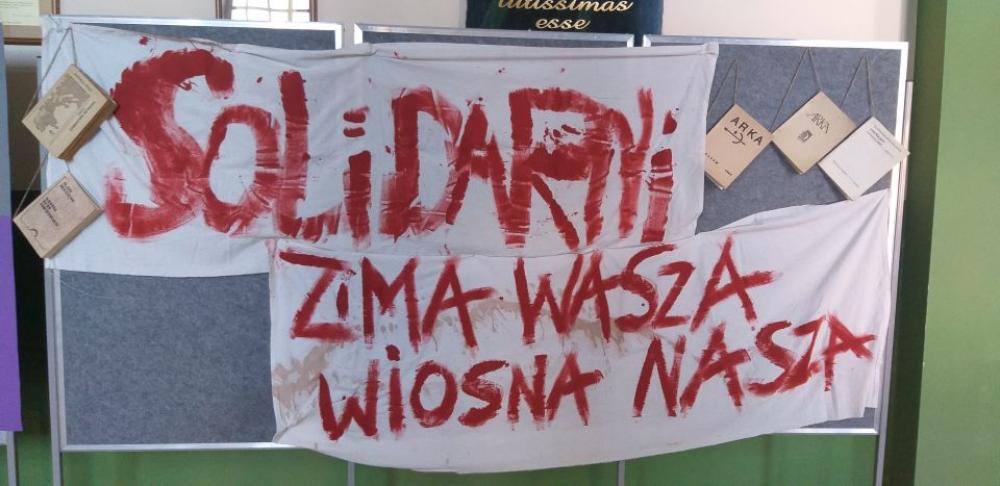 esse
SOLiDARNi
ZiMA WASZA
WiOSNA NASZA
ARKA
ARKA